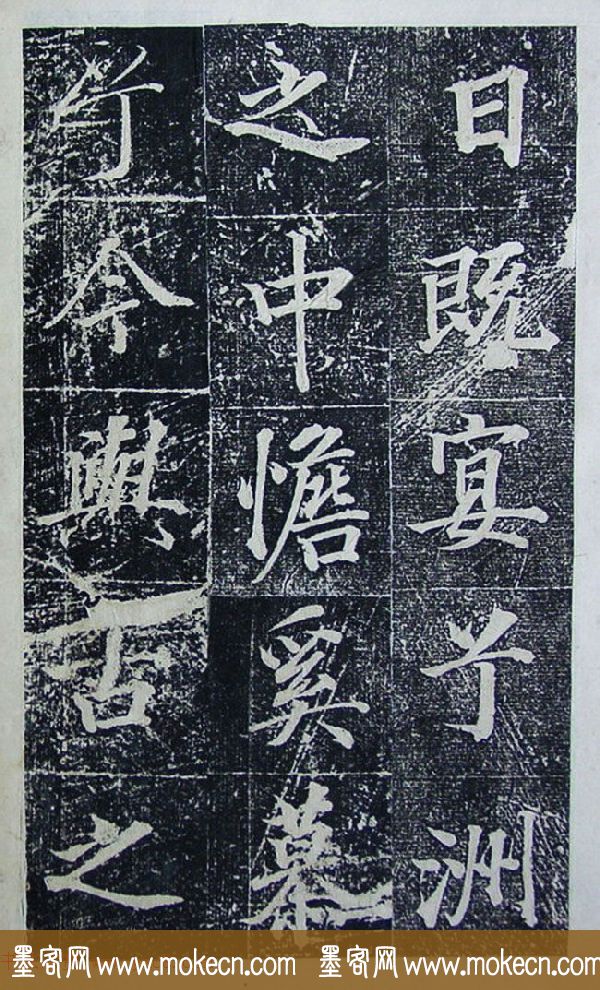 日既宴兮洲
之中憺奚慕
兮今與古之
墨客网 www.mokecn.com 墨客网 www.mokecn.com